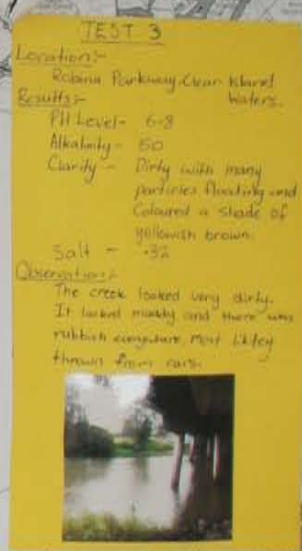 TEST 3
Location:-
Robina Parkway. Clear Island
Waters.
Results:-
PH Level- 6-8
Alkalinity- 60
Clarity - Dirty with many
particles floating and
Coloured a shade of
yellowish brown.
Salt - .32
Observation:-
The creek looked very dirty.
It looked muddy and there was
rubbish everywhere, most likley
thrown from cars.